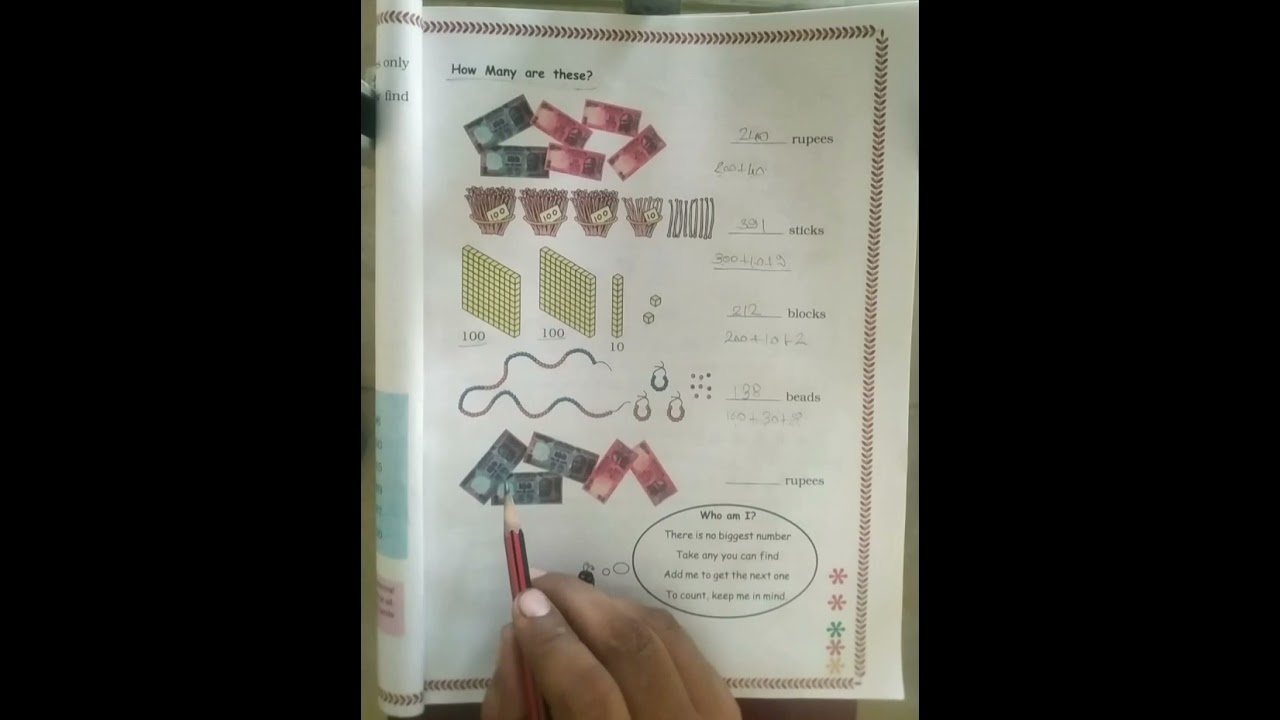 only
find
How Many are these?
240 rupees
200+40
100
100
100
10
391 sticks
300+10+9
212 blocks
100
100
10
200+10+2
138 beads
100+30+8
______ rupees
Who am I?
There is no biggest number
Take any you can find
Add me to get the next one
To count, keep me in mind.